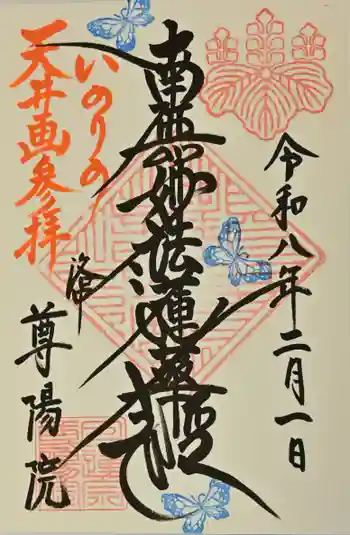 令和八年二月一日
南無妙法蓮華経
いのりの
天井画参拝
洛中
尊陽院